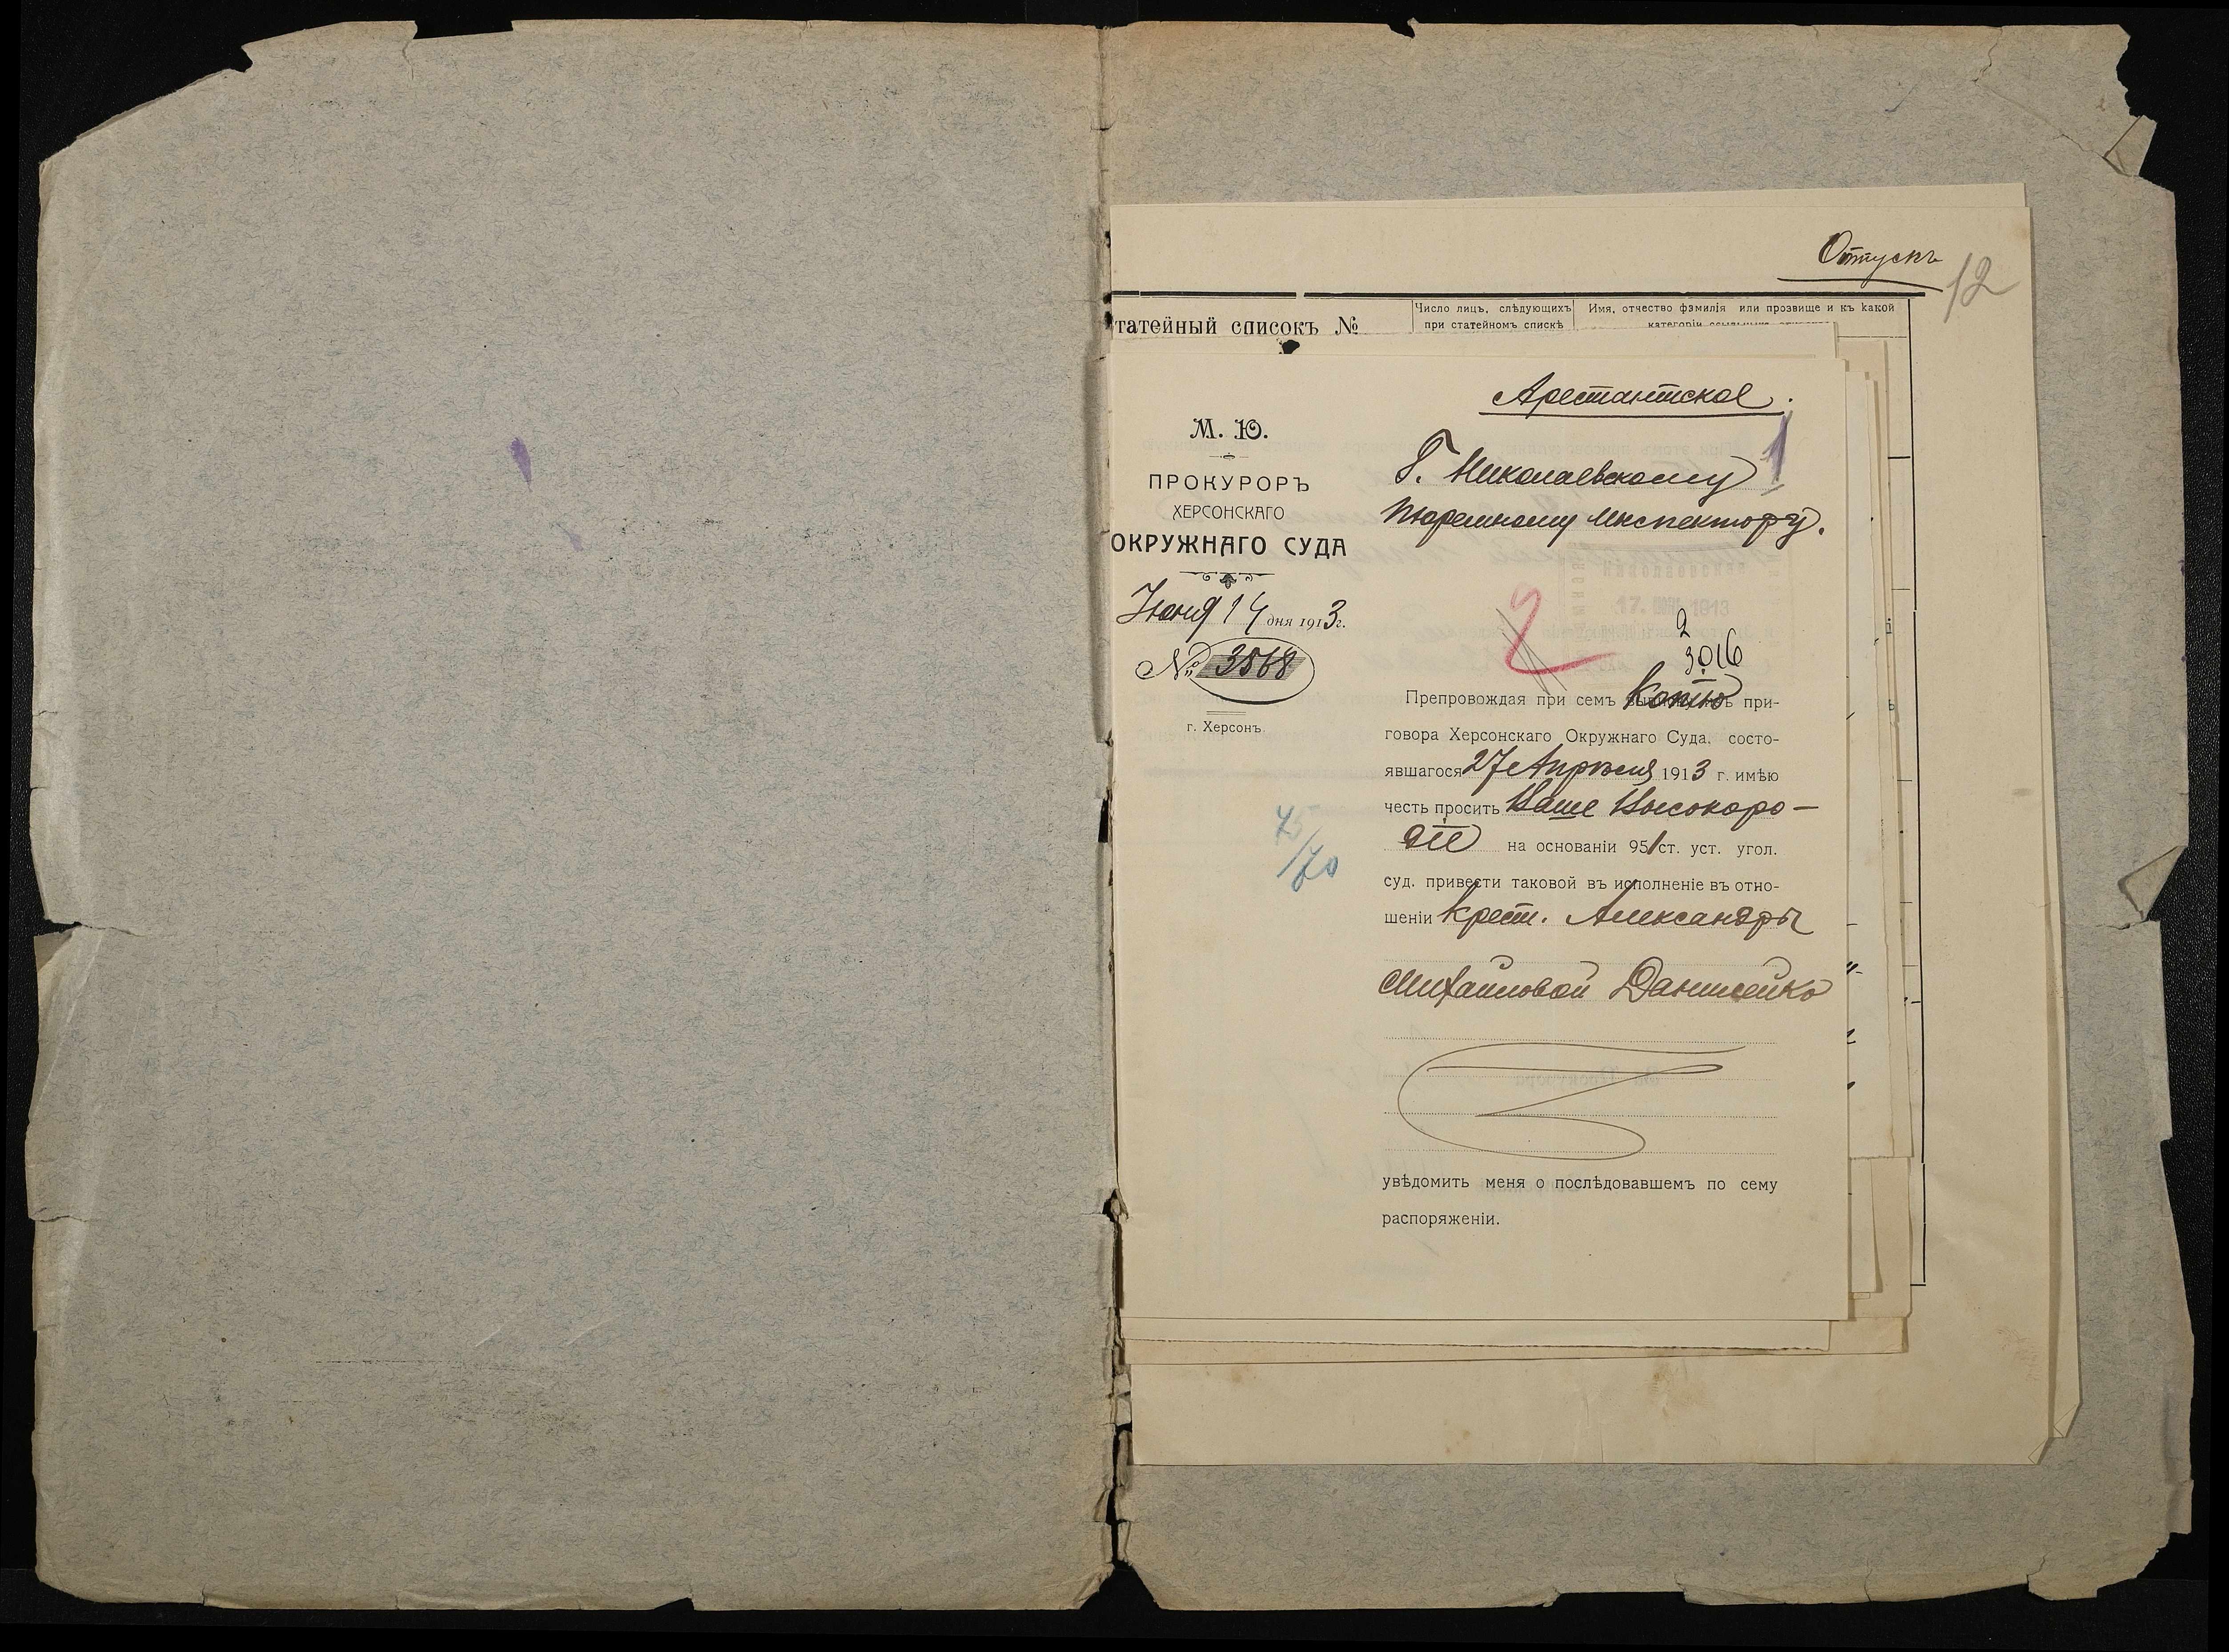 Отпускъ
12
татейный списокъ №
Число лицъ, слѣдующихъ при статейномъ спискѣ
Имя, отчество фамилія или прозвище и къ какой
Арестантское.
1
М. Ю.
ПРОКУРОРЪ
ХЕРСОНСКАГО
ОКРУЖНАГО СУДА
Июня 14 дня 1913 г.
№ 3568
г. Херсонъ
Г. Николаевскому
Тюремному Инспектору.
2
2
3016
Препровождая при семъ Копію при-
говора Херсонскаго Окружнаго Суда, состо-
явшагося 27 Апрѣля 1913 г. имѣю
честь просить Ваше Высокоро-
діе на основаніи 951 ст. уст. угол.
суд. привести таковой въ исполненіе въ отно-
шеніи крест. Александры
Михайловой Данилейко
увѣдомить меня о послѣдовавшемъ по сему
распоряженіи.